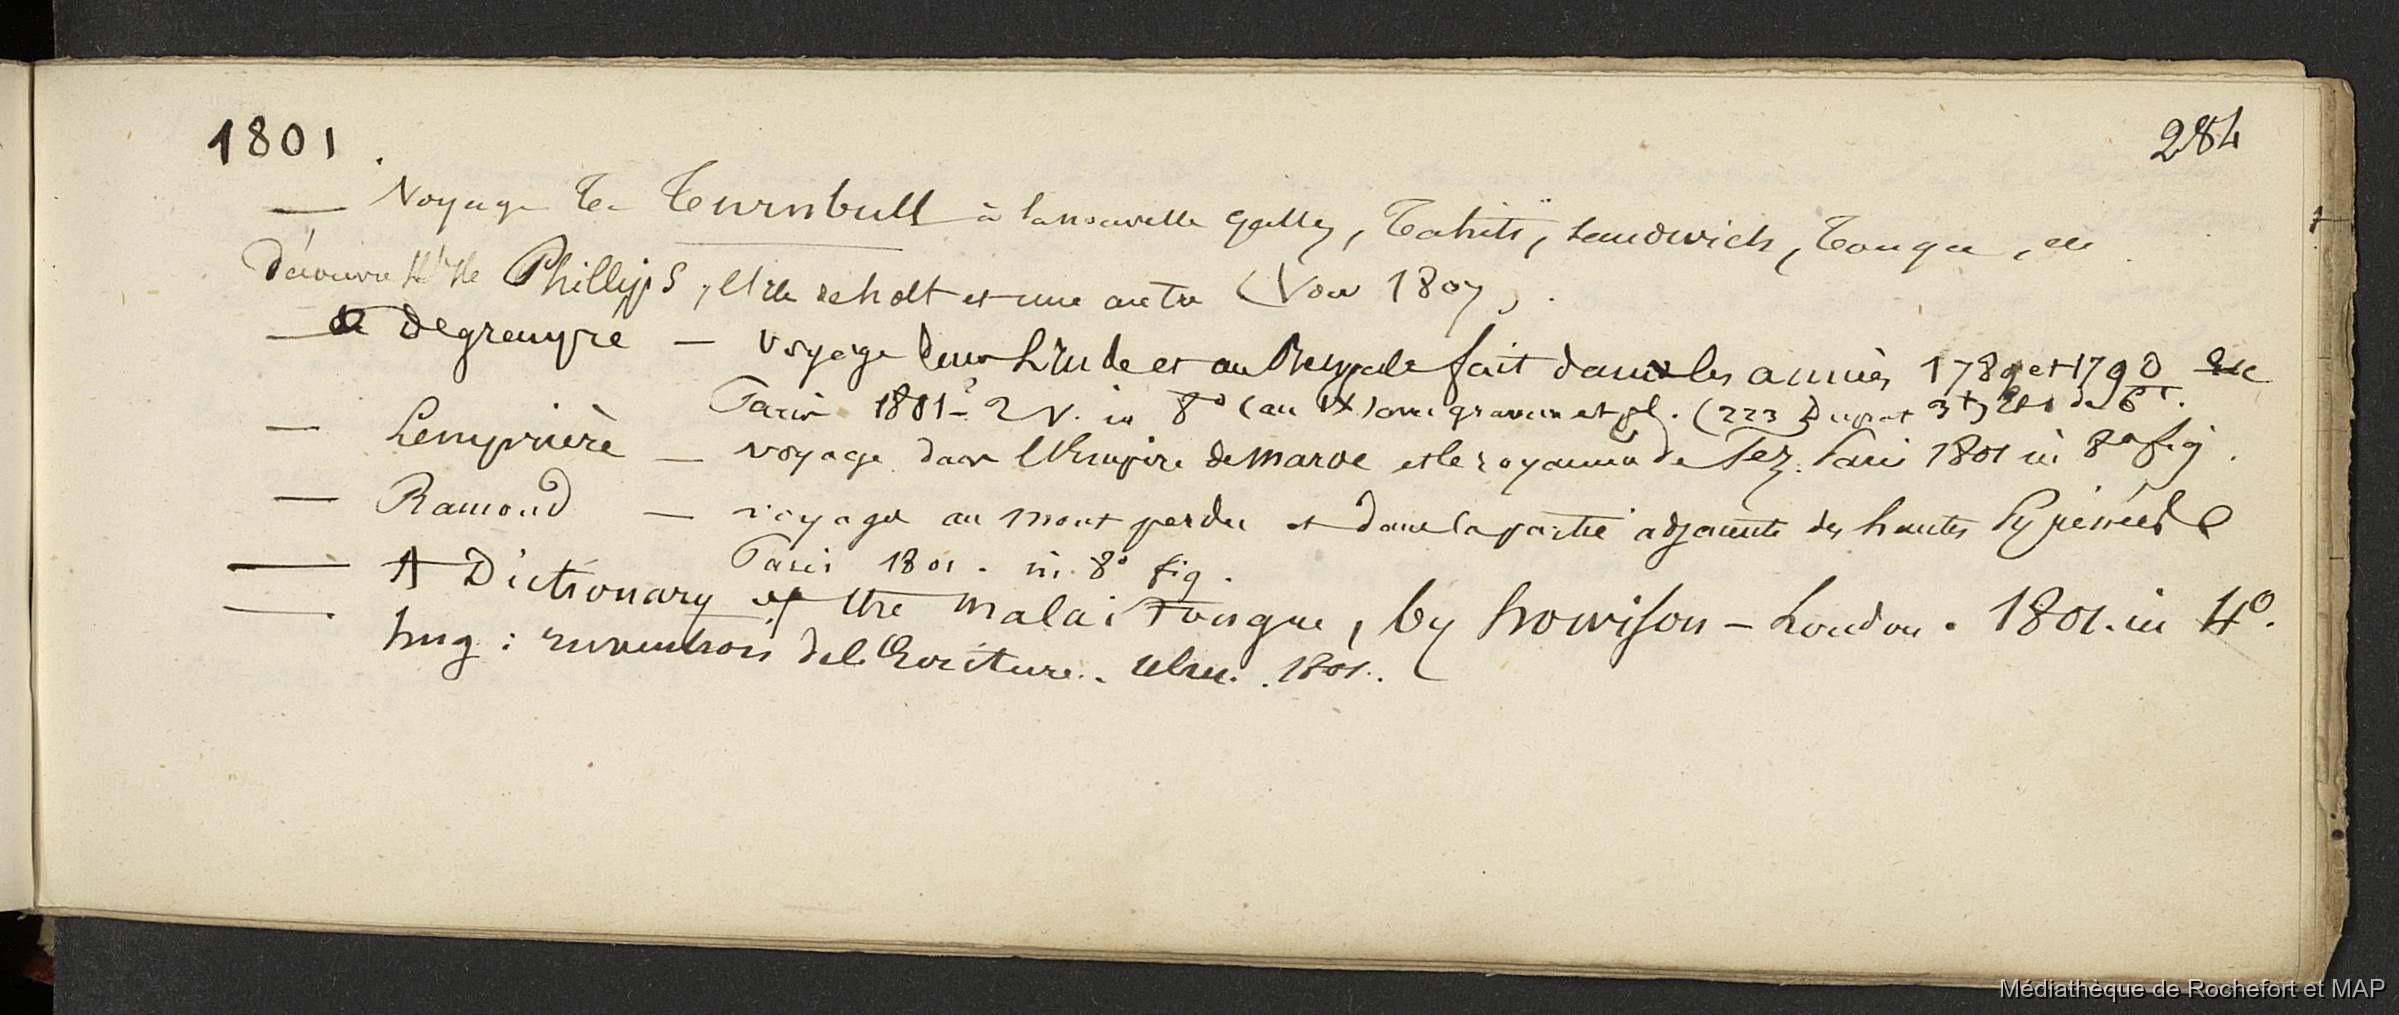 1801.
284
— Voyage de Turnbull à la nouvelle galles, Tahiti, Sandwich, Tonga, etc
Découvre Phillips, et de holt et une autre (Voir 1807).
— de degranpre — voyage dans L'inde et au Bengale fait dans les années 1789 et 1790 etc
Paris 1801 – 2 v. in 8° (an IX) avec gravures et pl. (223
— Lempriere — voyage dans l'Empire de maroc et le royaume de Fez. Paris 1801 in 8° fig.
— Ramond — voyages au mont perdu et dans la partie adjacente des hautes Pyrénées
Paris 1801. in 8° fig.
— A Dictionary of the malai Tongue, by howison – London. 1801. in 4°.
— hug : invention de l'Ecriture. ulm. 1801.
Médiathèque de Rochefort et MAP